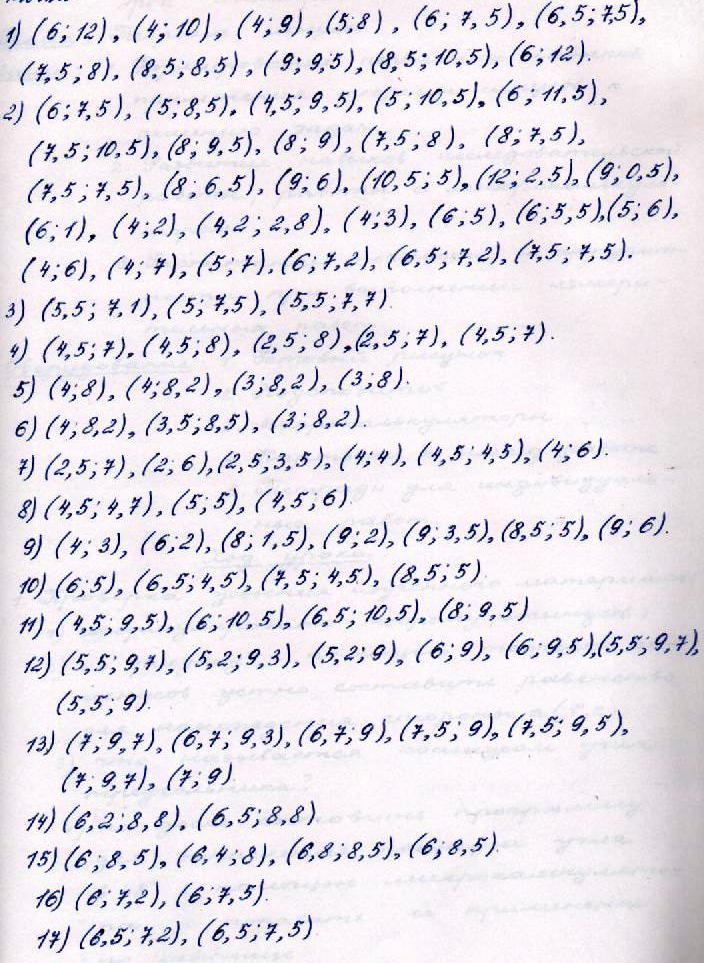 1) (6; 12), (4; 10), (4; 9), (5; 8), (6; 7, 5), (6,5; 7,5),
(7,5; 8), (8,5; 8,5), (9; 9,5), (8,5; 10,5), (6; 12).
2) (6; 7,5), (5; 8,5), (4,5; 9,5), (5; 10,5), (6; 11,5),
(7,5; 10,5), (8; 9,5), (8; 9), (7,5; 8), (8; 7,5),
(7,5; 7,5), (8; 6,5), (9; 6), (10,5; 5), (12; 2,5), (9; 0,5),
(6; 1), (4; 2), (4,2; 2,8), (4; 3), (6; 5), (6; 5,5), (5; 6),
(4; 6), (4; 7), (5; 7), (6; 7,2), (6,5; 7,2), (7,5; 7,5).
3) (5,5; 7,1), (5; 7,5), (5,5; 7,7).
4) (4,5; 7), (4,5; 8), (2,5; 8), (2,5; 7), (4,5; 7).
5) (4; 8), (4; 8,2), (3; 8,2), (3; 8).
6) (4; 8,2), (3,5; 8,5), (3; 8,2).
7) (2,5; 7), (2; 6), (2,5; 3,5), (4; 4), (4,5; 4,5), (4; 6).
8) (4,5; 4,7), (5; 5), (4,5; 6).
9) (4; 3), (6; 2), (8; 1,5), (9; 2), (9; 3,5), (8,5; 5), (9; 6).
10) (6; 5), (6,5; 4,5), (7,5; 4,5), (8,5; 5).
11) (4,5; 9,5), (6; 10,5), (6,5; 10,5), (8; 9,5)
12) (5,5; 9,7), (5,2; 9,3), (5,2; 9), (6; 9), (6; 9,5), (5,5; 9,7),
(5,5; 9).
13) (7; 9,7), (6,7; 9,3), (6,7; 9), (7,5; 9), (7,5; 9,5),
(7; 9,7), (7; 9).
14) (6,2; 8,8), (6,5; 8,8).
15) (6; 8,5), (6,4; 8), (6,8; 8,5), (6; 8,5).
16) (6; 7,2), (6; 7,5).
17) (6,5; 7,2), (6,5; 7,5)